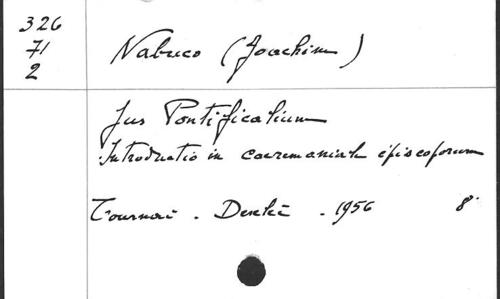 326
71
2
Nabuco (Joachim)
Jus Pontificalium
Introductio in caeremoniale episcoporum
Tournai . Desclée . 1956 8°